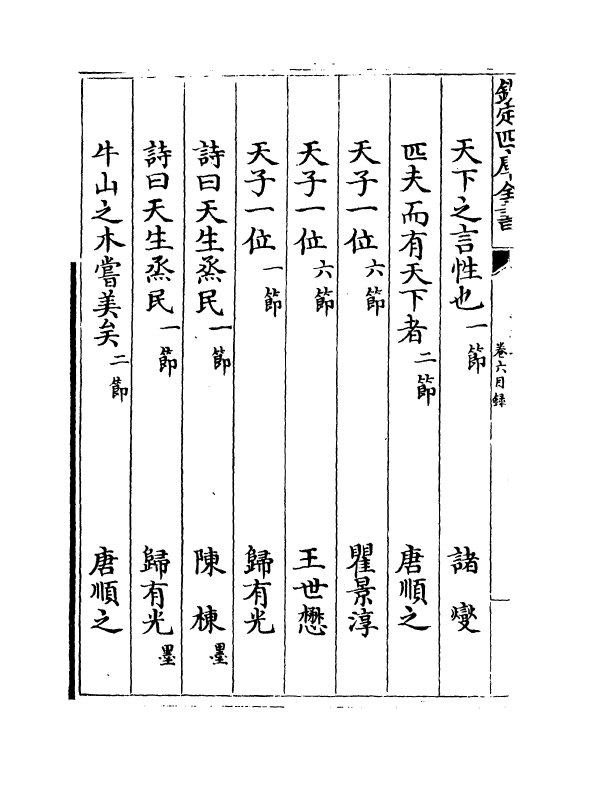 欽定四庫全書
卷六目録
天下之言性也 一節 諸燮
匹夫而有天下者 二節 唐順之
天子一位 六節 瞿景淳
天子一位 六節 王世懋
天子一位 一節 歸有光
詩曰天生烝民 一節 陳棟 墨
詩曰天生烝民 一節 歸有光 墨
牛山之木嘗美矣 二節 唐順之